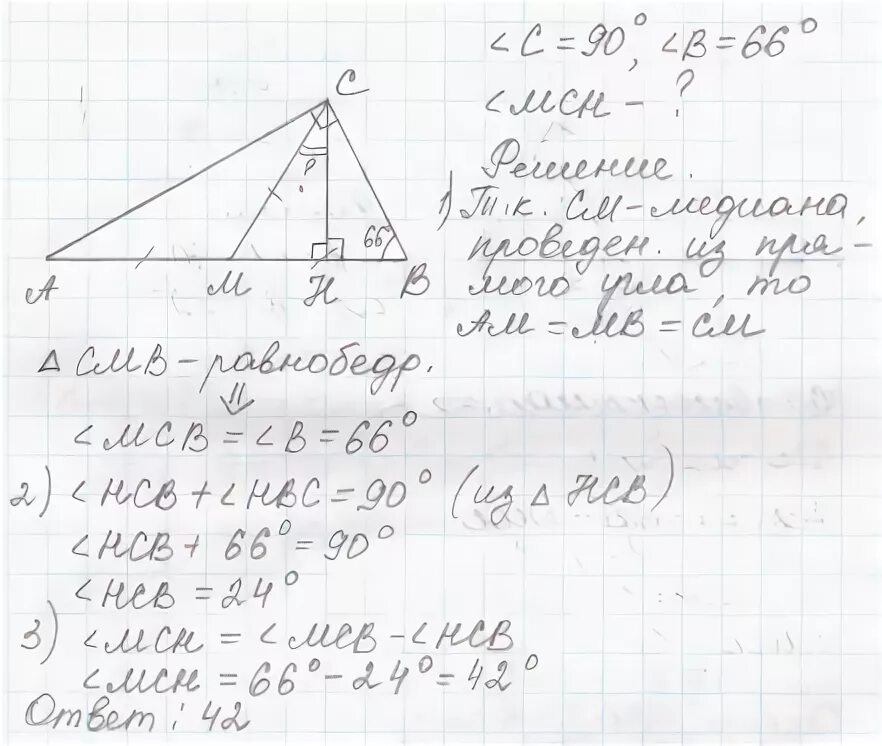 ∠C = 90°, ∠B = 66°
∠MCH - ?
Решение.
1) Т.к. CM - медиана,
проведен. из пря-
мого угла, то
AM = MB = CM
C
P
66°
A
M
H
B
△ CMB - равнобедр.
⇓
∠MCB = ∠B = 66°
2) ∠HCB + ∠HBC = 90° (из △ HCB)
∠HCB + 66° = 90°
∠HCB = 24°
3) ∠MCH = ∠MCB - ∠HCB
∠MCH = 66° - 24° = 42°
Ответ: 42